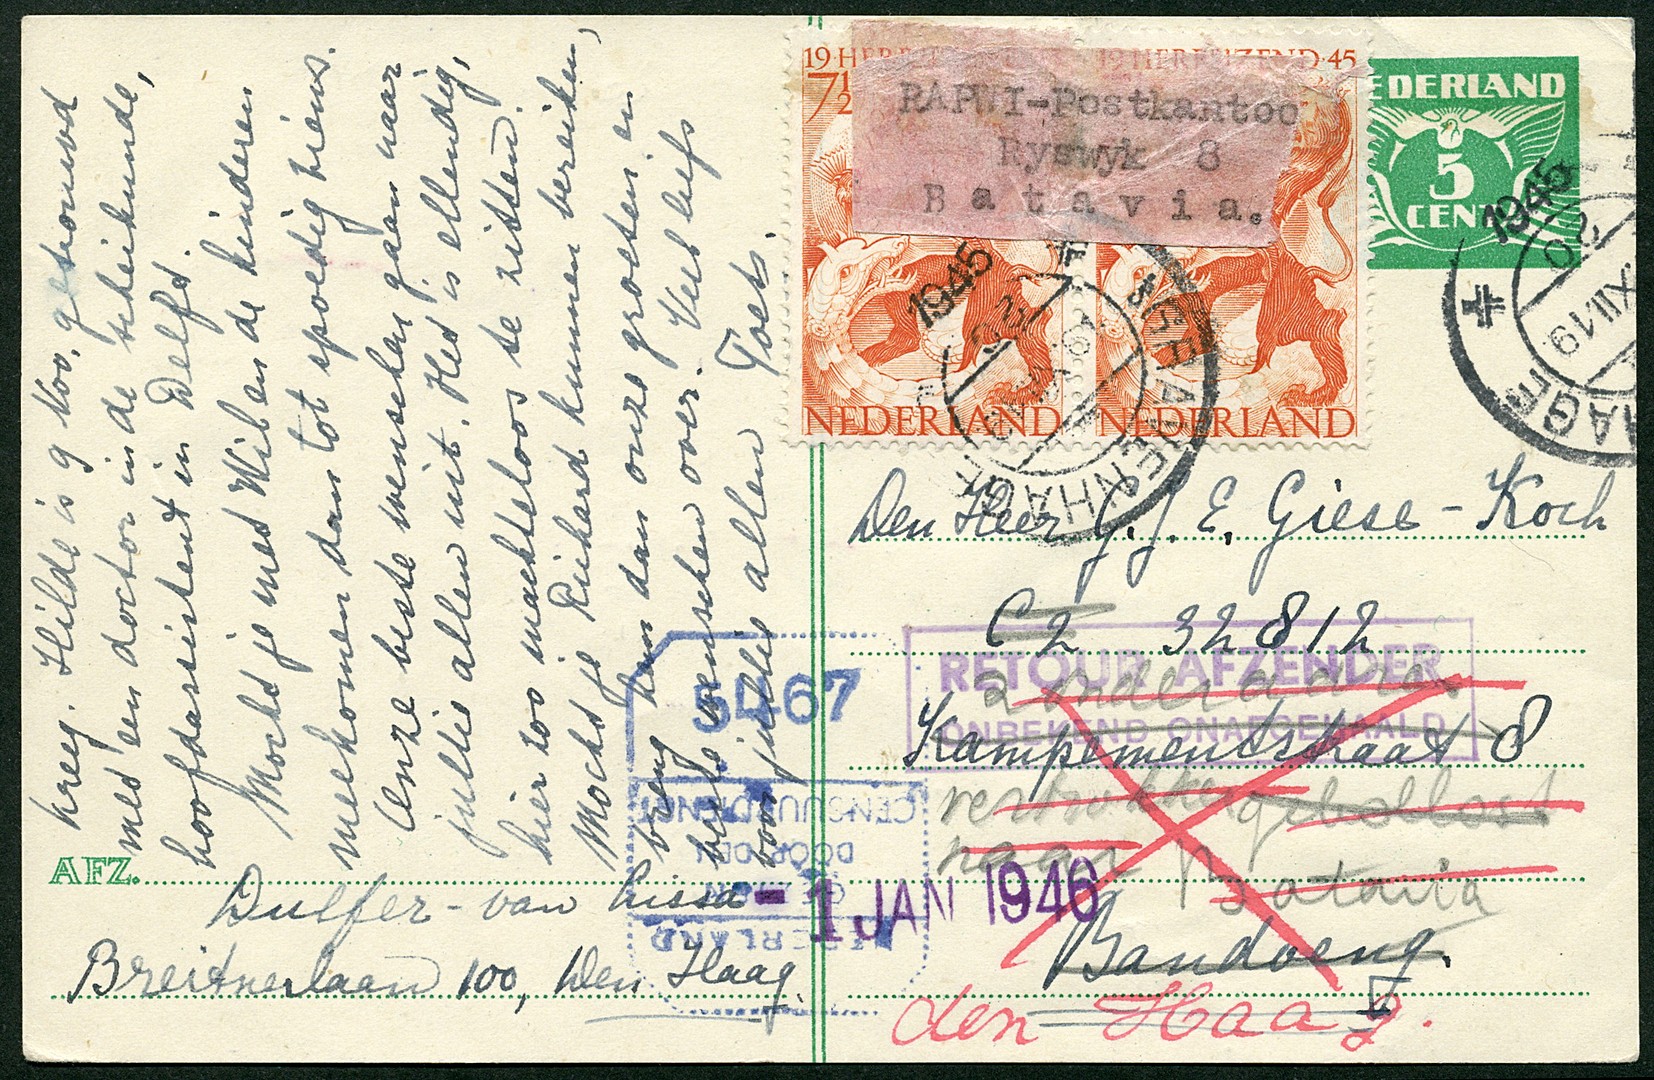 kreeg. Hilde is 9 Nov. getrouwd
met een doctor in de scheikunde,
hoofdassistent in Delft.
Mocht je met Wib en de kinderen
meekomen dan tot spoedig ziens.
Onze beste wenschen gaan naar
jullie allen uit. Het is ellendig,
hier zoo machteloos te zitten.
Mocht je Richard kunnen bereiken,
breng hem dan onze groeten en
beste wenschen over. Veel liefs
voor jullie allen Toets.
AFZ.
Dulfer - van Lissa
Breitnerlaan 100, Den Haag.
19·HER 19 HERRIJZEND·45
7½
RAPWI-Postkantoo
Ryswyk 8
Batavia.
NEDERLAND NEDERLAND
EDERLAND
5
CENT
1945
'S GRAVENHAGE
1945
XII.19
HAGE
Den Heer G. J. E. Giese - Koch
C2 32812
RETOUR AFZENDER
ONBEKEND ONAFGEHAALD
Kampementstraat 8
vertrokken
naar Batavia
Bandoeng.
den Haag.
5467
NEDERLAND
DOOR DEN
CENSUURDIENST
- 1 JAN 1946